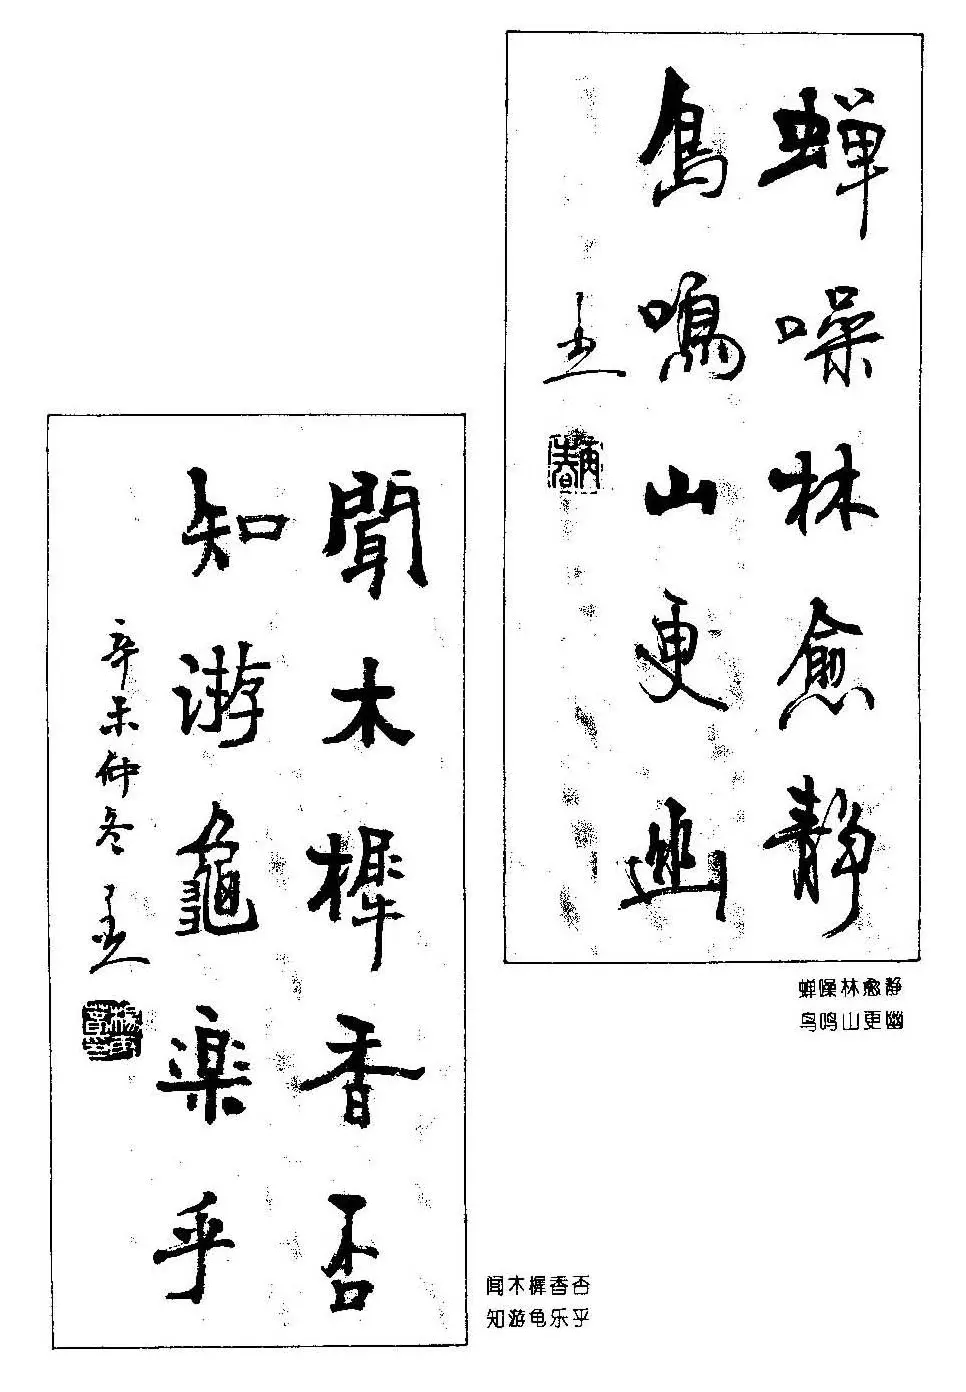 蝉噪林愈静
鳥鳴山更幽
蝉噪林愈静
鸟鸣山更幽
聞木樨香否
知游龜楽乎
辛未仲冬
闻木樨香否
知游龟乐乎